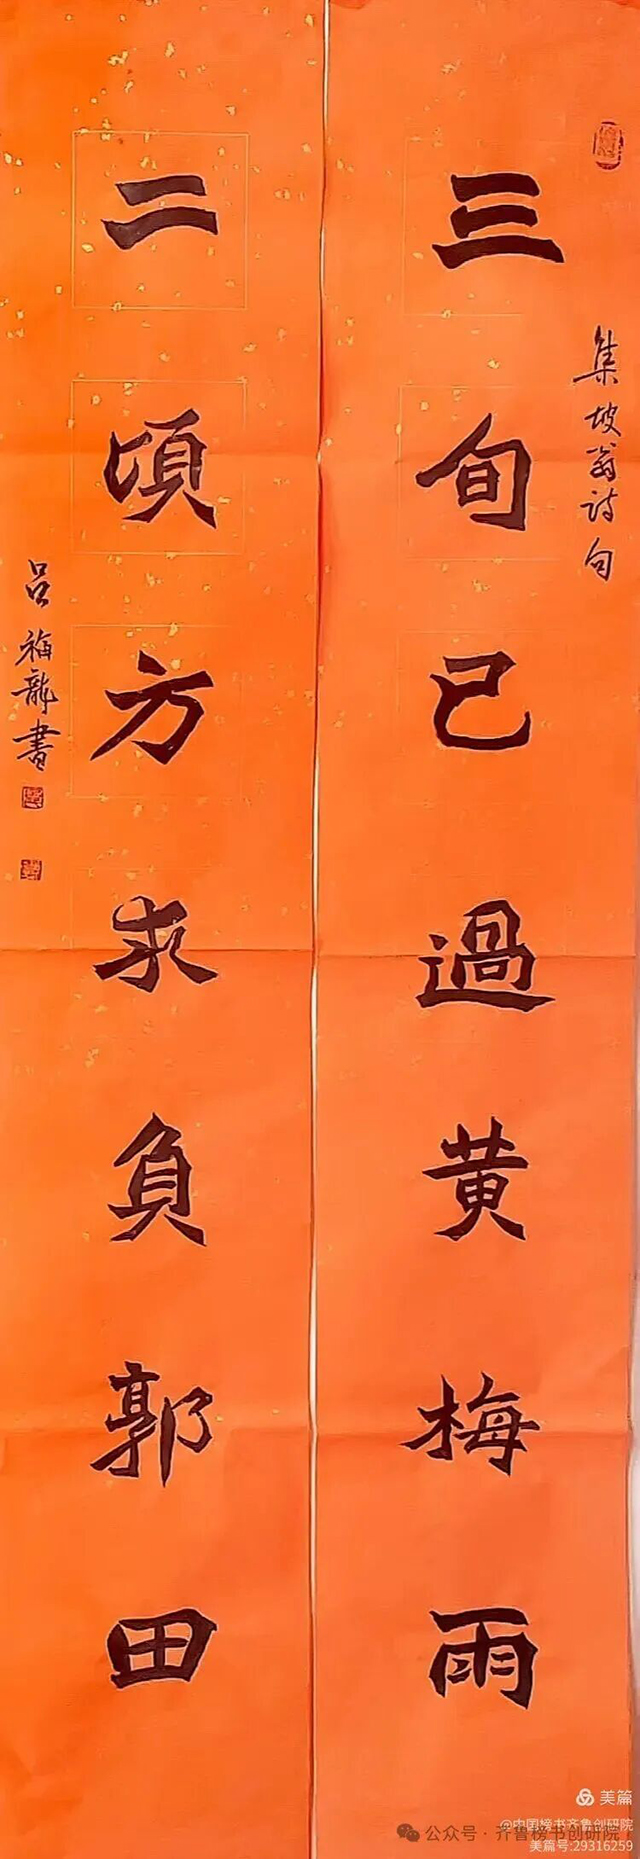 集坡翁诗句
三旬已過黄梅雨
二頃方求負郭田
吕福龍書
美篇
@中国榜书齐鲁创研院
公众号 · 齐鲁榜书创研院
美篇号:29316259